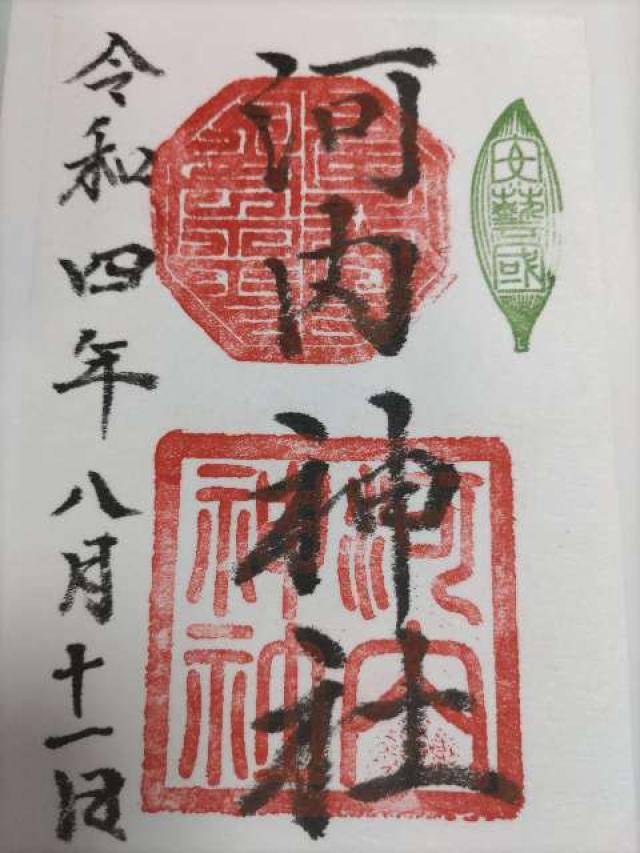 安藝國
河内神社
河内
神
令和四年八月十一日